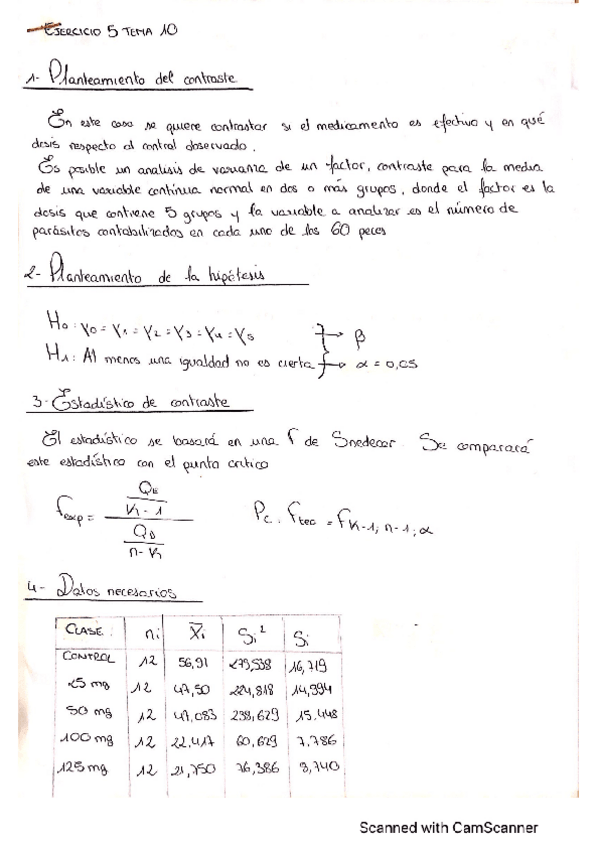 EJERCICIO 5 TEMA 10
1- Planteamiento del contraste
En este caso se quiere contrastar si el medicamento es efectivo y en qué
dosis respecto al control observado.
Es posible un analisis de varianza de un factor, contraste para la media
de una variable continua normal en dos o más grupos, donde el factor es la
dosis que contiene 5 grupos y la variable a analizar es el número de
parásitos contabilizados en cada uno de los 60 peces
2- Planteamiento de la hipótesis
H0: γ0 = γ1 = γ2 = γ3 = γ4 = γ5 } → β
H1: Al menos una igualdad no es cierta } → α = 0,05
3- Estadístico de contraste
El estadístico se basará en una F de Snedecor. Se comparará
este estadístico con el punto crítico
fexp = (QE / K-1) / (QD / n-K) Pc. Ftec = FK-1; n-1; α
4- Datos necesarios
CLASE ni X̄i Si² Si
CONTROL 12 56,91 279,538 16,719
25 mg 12 47,50 224,818 14,994
50 mg 12 47,083 238,629 15.448
100 mg 12 22.417 60,629 7,786
125 mg 12 21,750 76,386 8,740
Scanned with CamScanner